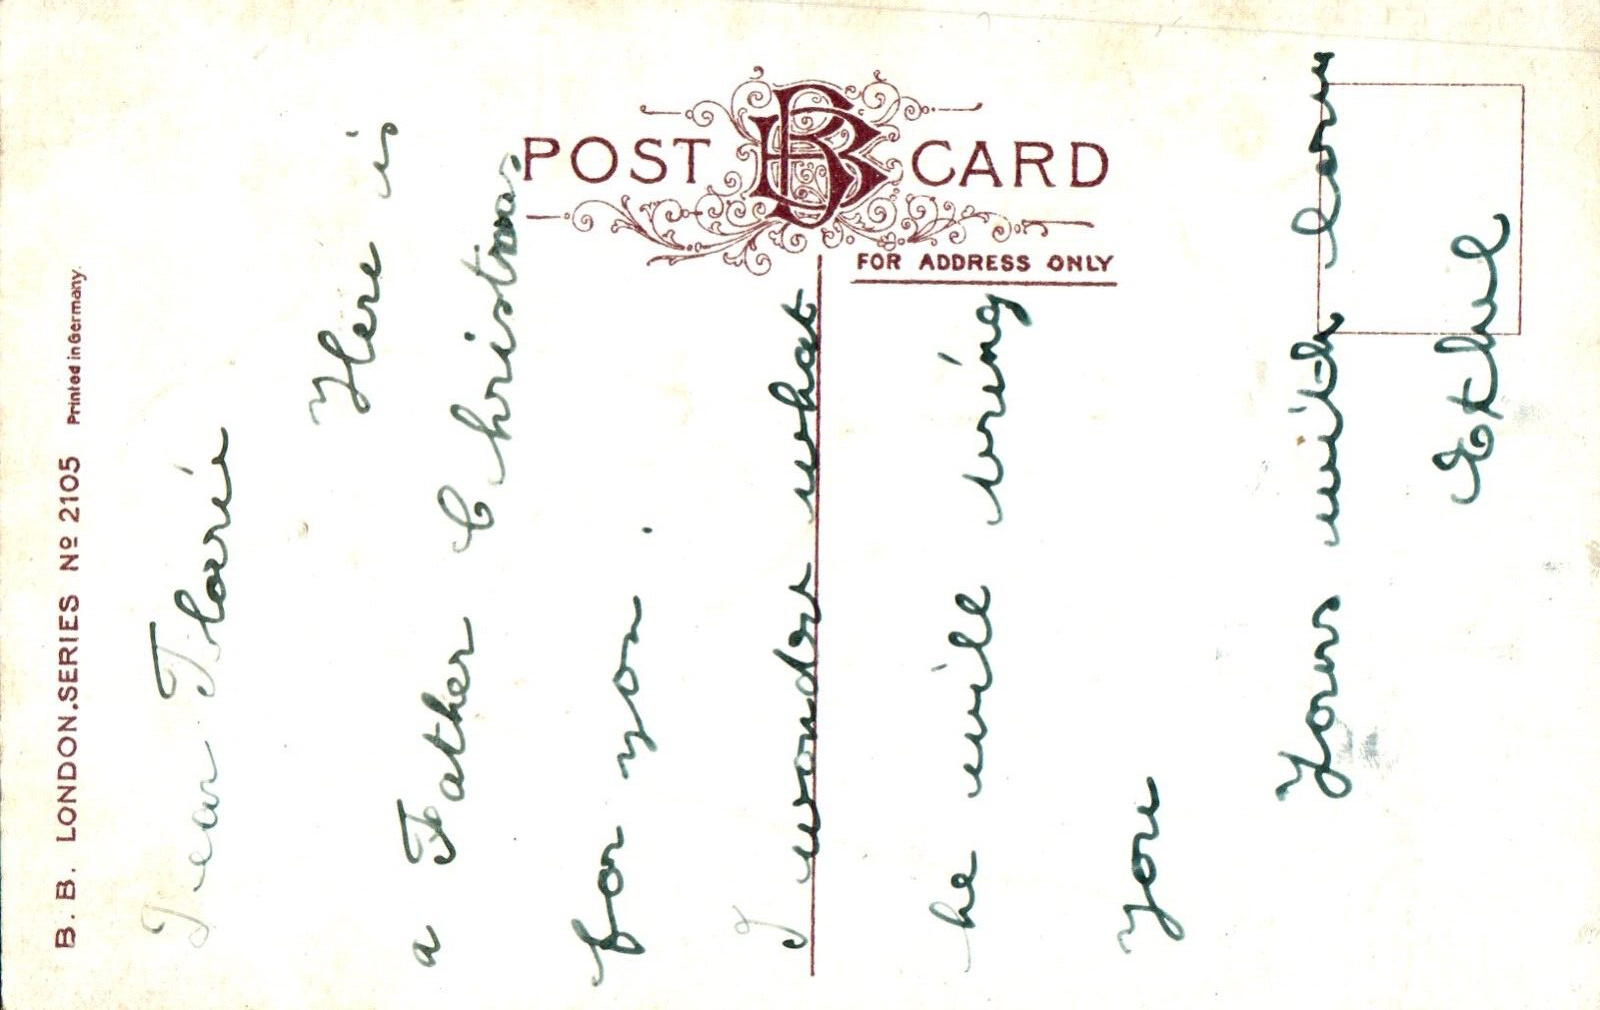 POST CARD
FOR ADDRESS ONLY
B. B. LONDON. SERIES Nº 2105 Printed in Germany.
Dear Florie
Here is
a Father Christmas
for you.
I wonder what
he will bring
you
Yours with love
Ethel